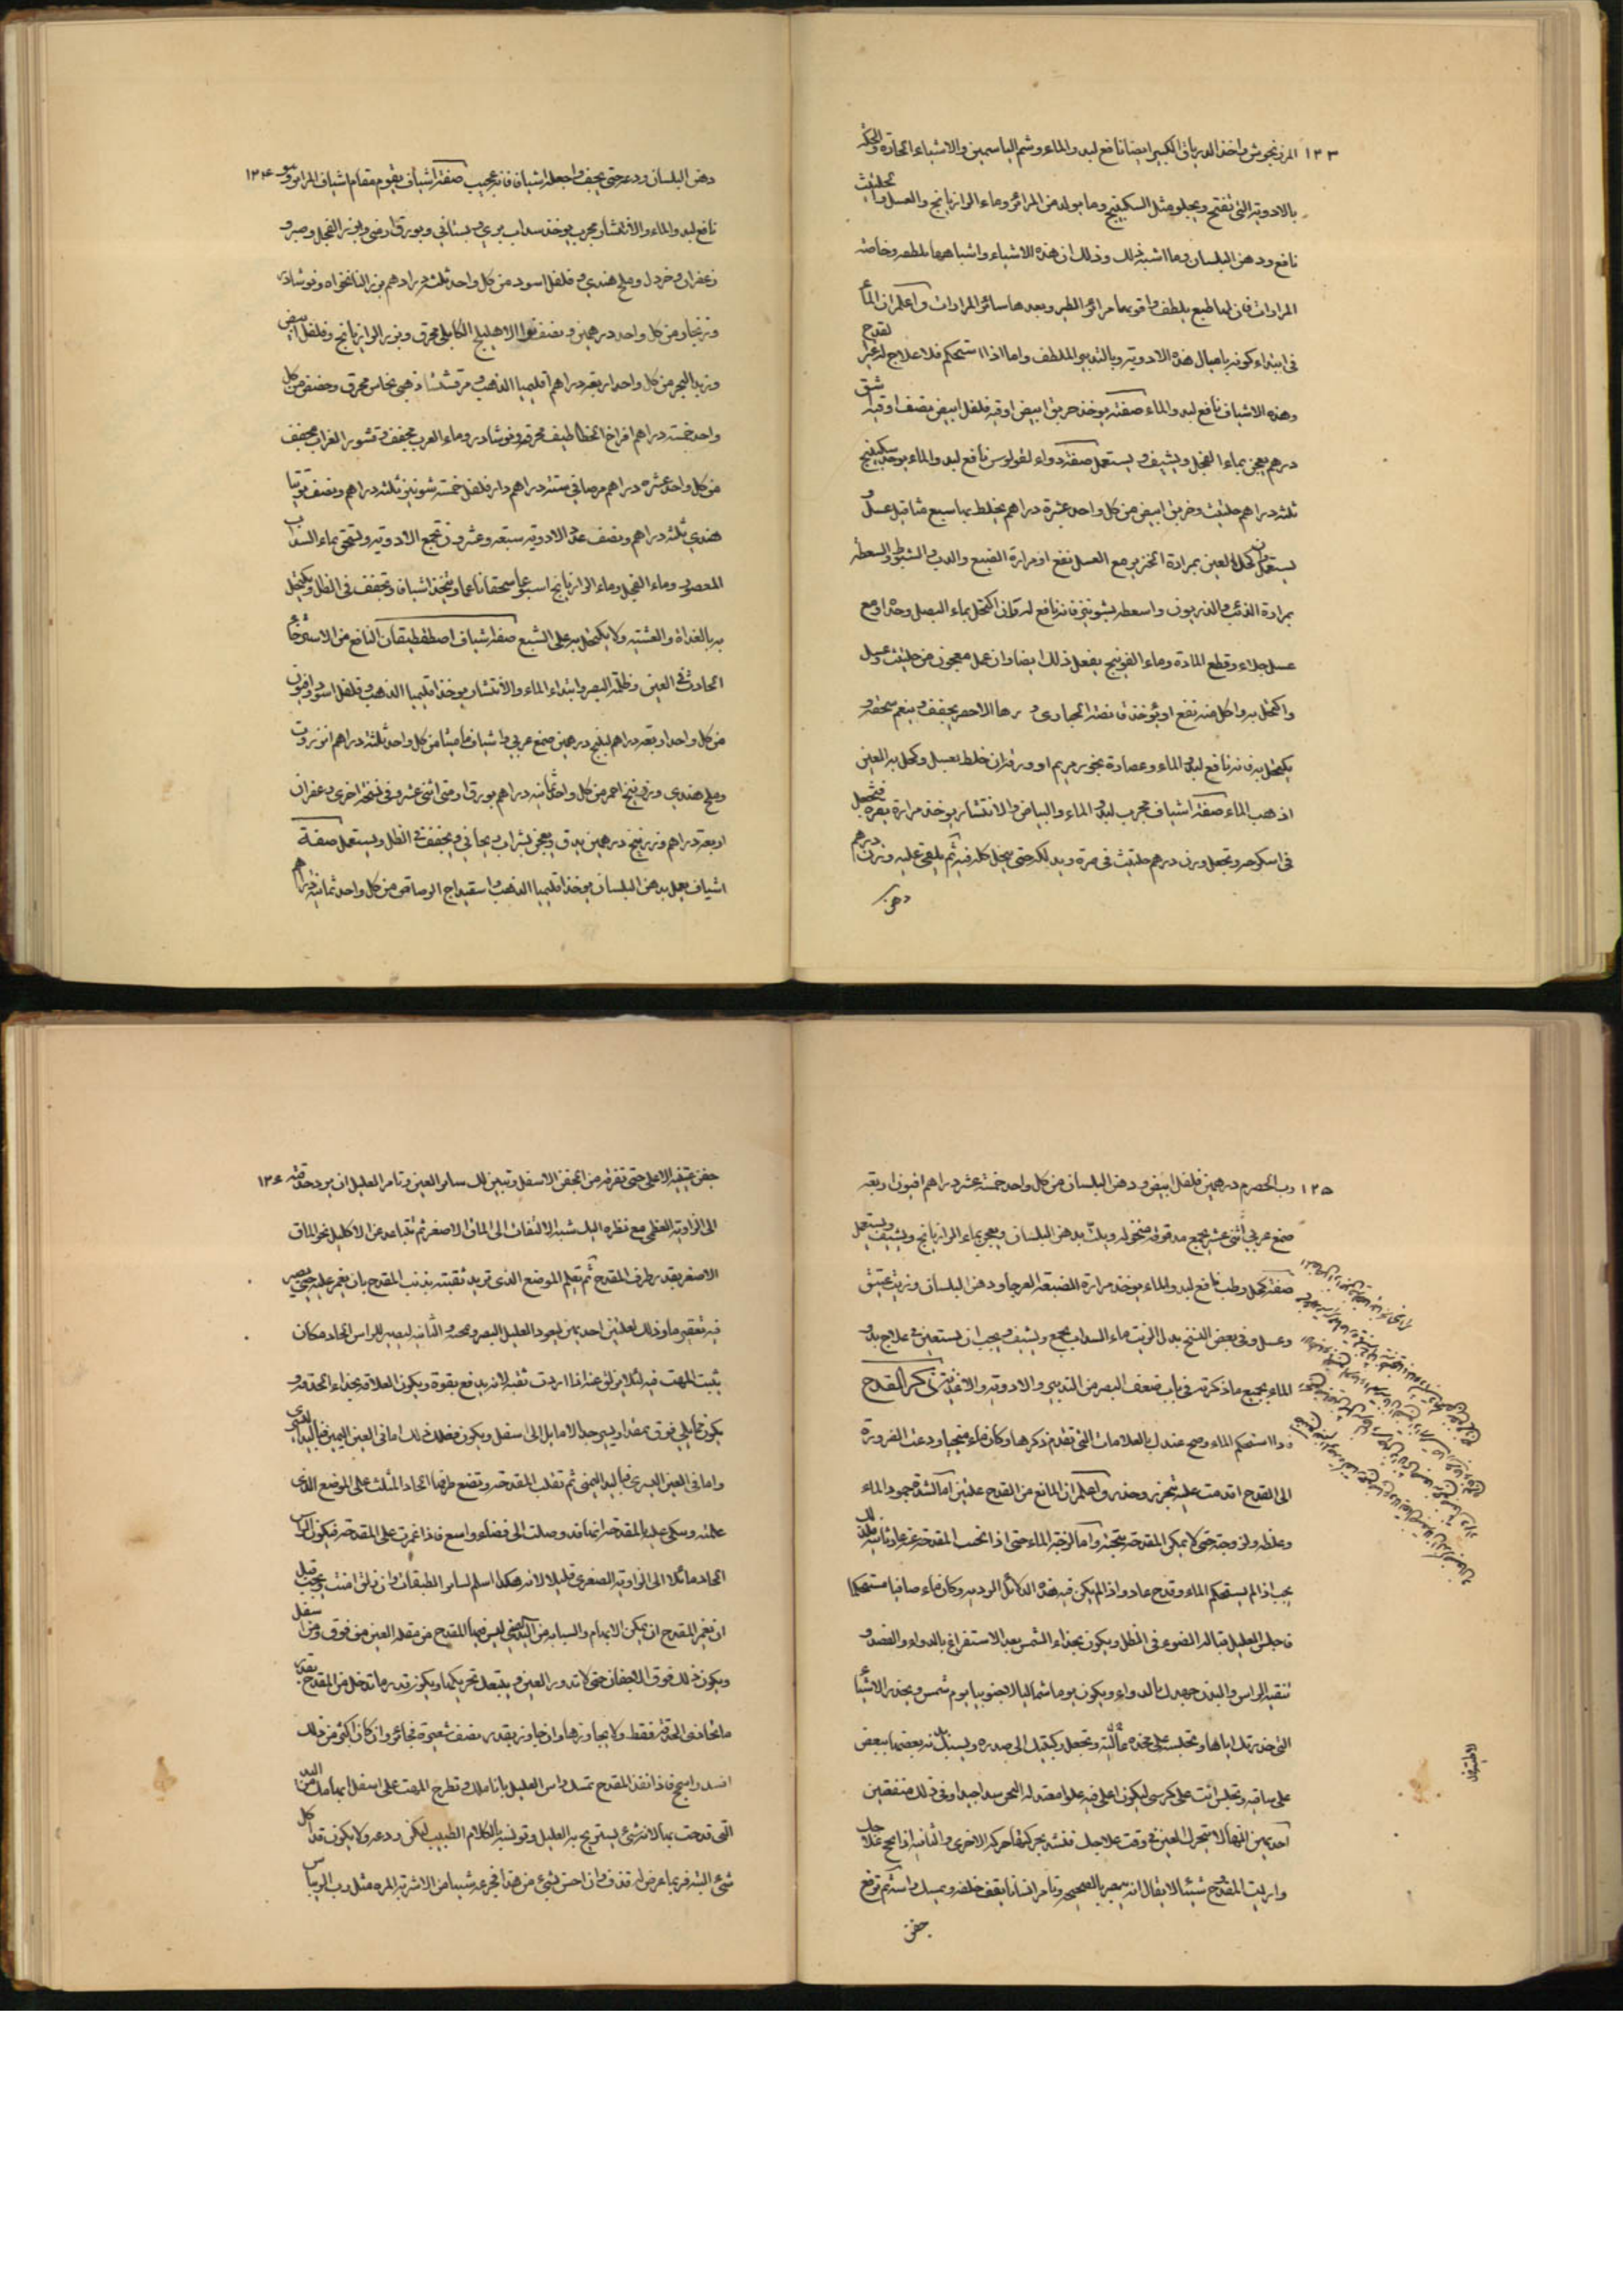 ١٢٣ المرزنجوش واخذ الدرياق الكبير ايضا نافع لبدو الماء وشم الياسمين والاشياء الحادة والحكه
بالادوية التي تفتح وتجلو مثل السكبينج وما يولد من المرائر وماء الرازيانج والعسل والحلتيث
نافع ودهن البلسان وما اشبه ذلك وذلك ان هذه الاشياء واشباهها ملطفه وخاصه
المرارات فان لها طبع يلطف واقويها مرائر الطير وبعدها سائر المرارات واعلم ان الماء
في ابتداء كونه بامثال هذه الادوية وبالتدبير الملطف واما اذا استحكم فلا علاج له غير القدح
وهذه الاشياف نافع لبدو الماء صفته يوخذ خربق ابيض اوقيه فلفل ابيض نصف اوقيه اشق
درهم يعجن بماء الفجل ويشيف ويستعمل صفة دواء لفولوس نافع لبدو الماء يوخذ سكبينج
ثلثه دراهم حلتيث وخربق ابيض من كل واحد عشرة دراهم يخلط بها سبع مثاقيل عسل و
يستعمل وان كحل العين بمرارة الخنزير مع العسل نفع او مرارة الضبع والدب والشبوط والسعطه
بمرارة الذئب واسعطه بشونيز فانه نافع له وان اكتحل بماء البصل وحده او مع
عسل جلاء وقطع المادة وماء الفوتنج يفعل ذلك ايضا وان عمل معجون من حلتيث وعسل
واكتحل به واكل منه نفع او يوخذ قانصة الحبارى يجفف وينعم سحقه و
يكتحل به فانه نافع لبدو الماء وعصارة بخور مريم او ورقه ان خلط بعسل وكحل به العين
اذهب الماء صفة اشياف مجرب لبدو الماء والبياض والانتشار يوخذ مرارة بقرة فتجعل
في اسكرجه وتجعل وزن درهم حلتيث في صرة ويدلكه حتى ينحل كله فيه ثم يلقى عليه وزن درهم
دهن
دهن البلسان ودعه حتى يجف واجعله اشياف فانه عجيب صفة اشياف يقوم مقام اشياف المرائر وهو ١٢٤
نافع لبدو الماء والانتشار مجرب يوخذ سداب بري وبستاني وبورق ارمني وبزر الفجل وصبر و
زعفران وخردل وملح هندي وفلفل اسود من كل واحد ثلثه دراهم بزر النانخواه ونوشادر
وزنجار من كل واحد درهمين ونصف نوا الاهليلج الكابلي محرق وبزر الرازيانج وفلفل ابيض
وزبد البحر من كل واحد اربعه دراهم اقليميا الذهب ومرقشيثا ذهبي نحاس محرق وحضض من كل
واحد خمسة دراهم افراخ الخطاطيف محرقه ونوشادر وماء العرب مجفف وقشور الغراب مجفف
من كل واحد عشره دراهم مرصافي سته دراهم دار فلفل خمسه شونيز ثلثه دراهم ونصف توتيا
هندي ثلثه دراهم ونصف عدد الادويه سبعه وعشرون تجمع الادويه وتسحق بماء السداب
المعصور وماء الفجل وماء الرازيانج اسبوعا سحقا ناعما ويتخذ اشياف وتجفف في الظل ويكتحل
به بالغداة والعشيه ولا يكتحل به على الشبع صفة اشياف اصطفطيقان النافع من الاسترخاء
الحادث في العين وظلمة البصر وابتداء الماء والانتشار يوخذ اقليميا الذهب وفلفل اسود وافيون
من كل واحد اربعه دراهم بلنج درهمين صمغ عربي واشياف ماميثا من كل واحد ثلثه دراهم انزروت
وملح هندي وزرنيخ احمر من كل واحد ثمانيه دراهم بورق ارمني اثني عشر وفي نسخه اخرى زعفران
اربعة دراهم وزرنيخ درهمين يدق ويعجن بشراب ريحاني ويجفف في الظل ويستعمل صفة
اشياف يعمل بدهن البلسان يوخذ اقليميا الذهب واسفيداج الرصاص من كل واحد ثمانيه دراهم
١٢٥ رب الحصرم درهمين فلفل ابيض ودهن البلسان من كل واحد خمسة عشر دراهم افيون اربعه
صمغ عربي اثنى عشر يجمع مدقوقه منخوله ويلت بدهن البلسان ويعجن بماء الرازيانج ويشيف ويستعمل
صفة كحل رطب نافع لبدو الماء يوخذ مرارة الضبعة العرجا ودهن البلسان وزيت عتيق
وعسل وفي بعض النسخ بدل الزيت ماء السداب يجمع ويشيف ويجب ان يستعين في علاج بدو
الماء بجميع ما ذكرته في باب ضعف البصر من التدبير والادويه والاغذيه ذكر القدح
واذا استحكم الماء وصح عندك بالعلامات التي تقدم ذكرها وكان ماء منجيا ودعت الضرورة
الى القدح اقدمت عليه بتحرز وحذر واعلم ان المانع من القدح علتين اما لشدة جمود الماء
وغلظه ولزوجته حتى لا يمكن المقدحه تنحيته واما لرقة الماء حتى اذا نحت المقدحه عنه عاد ثانيه فلذلك
يجب اذا لم يستحكم الماء وقدح عاد واذا لم يكن فيه هذه الدلائل الرديه وكان ماء صافيا مستحكما
فاجلس العليل قبالة الضوء في الظل ويكون بحذاء الشمس بعد الاستفراغ بالدواء والفصد و
تنقية الراس والبدن جهدك بالدواء ويكون يوما شماليا لا جنوبيا يوم شمس وتحذر الاشيا
التي حذرتك اياها وتجلسه على مخده وتجعل ركبتيه الى صدره ويشبك يديه بعضها ببعض
على ساقيه وتجلس انت على كرسي ليكون اعلى منه علوا معتدلا العين سدا جيدا وفي ذلك منفعتين
احديهن انها لا تتحرك العين في وقت علاجك نفسه بحركتها حركة الاخرى والثانيه اذا نجح علاجك
واريت المقدوح شيئا لا يقال انه يبصر بالصحيحه وتامر انسانا يقف خلفه ويمسك راسه ثم ترفع
جفن
جفن عينيه الاعلى حتى تفرقه من الجفن الاسفل وتبين لك سائر العين وتامر العليل ان يرد حدقته ١٢٦
الى الزاويه العظمى مع نظره اليك شبه الالتفات الى الماق الاصغر ثم تتباعد عن الاكليل نحو الماق
الاصغر بقدر طرف المقدح ثم تعلم الموضع الذي تريد ثقبه بذنب المقدح بان يغمز عليه حتى يصير
فيه تقعير ما وذلك لعلتين احديهن ليعود العليل الصبر وتمتحنه والثانيه ليصير للراس الحاد مكان
يثبت المهت فيه لئلا يزلق عنه اذا اردت ثقبه لانه يدفع بقوة ويكون العلامة بحذاء الحدقه و
يكون مما يلي فوق بمقدار يسير جدا لا مايل الى اسفل ويكون فعلك ذلك اما في العين اليمين فباليد اليسرى
واما في العين اليسرى فباليد اليمنى ثم تقلب المقدحه وتضع طرفها الحاد المثلث على الموضع الذي
علمته وتتكي عليه بالمقدحه انها قد وصلت الى فضاء واسع فاذا غمزت على المقدحه فيكون الراس
الحاد مائلا الى الزاويه الصغرى قليلا لانه هكذا اسلم لسائر الطبقات وان زلق امنت ويجب قبل
ان تغمز المقدح ان يمكن الابهام والسبابه من اليد التي ليس فيها المقدح من مقلة العين من فوق ومن اسفل
ويكون ذلك فوق الاجفان حتى لا تدور العين ويبطل تحريكها ويكون قدر ما تدخل من المقدح بقدر
ما تحاذي الحدقه فقط ولا يجاوزها وان جاوز بقدر نصف شعيرة فجائز وان كان اكثر من ذلك
افسد واسمج فاذا نفذ المقدح تمسك راس العليل بانامله وتطرح المهت على اسفل ابهامك من اليد
التي قدحت بها لانه شئ يستريح به العليل وتونسه بالكلام الطيب ليسكن روعه ولا يكون قد اكل
شئ البته فربما عرض له قذف وان احس بشئ من هذا فجرعه شيئا من الاشربة المره مثل رب الريباس